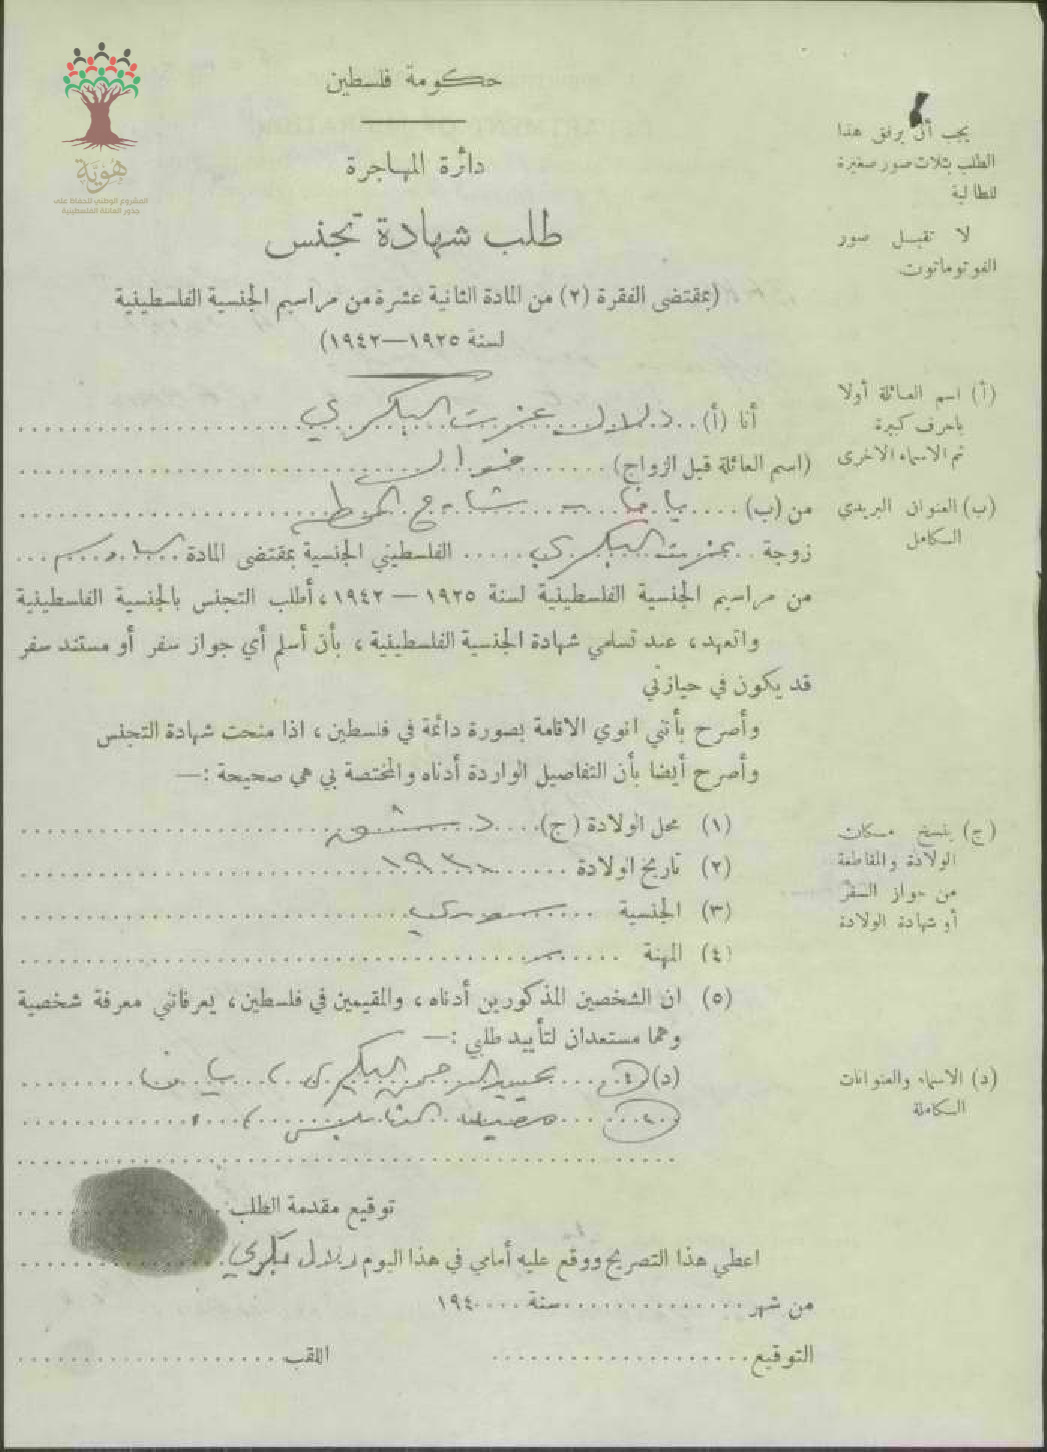 هُويّة
المشروع الوطني للحفاظ على
جذور العائلة الفلسطينية
حكومة فلسطين
دائرة المهاجرة
طلب شهادة تجنس
(بمقتضى الفقرة (٢) من المادة الثانية عشرة من مراسيم الجنسية الفلسطينية
لسنة ١٩٢٥—١٩٤٢)
يجب أن يرفق هذا
الطلب بثلاث صور صغيرة
للطالبة
لا تقبل صور
الفوتوماتون
(أ) اسم العائلة أولا
باحرف كبيرة
ثم الاسماء الاخرى
(ب) العنوان البريدي
الكامل
أنا (أ) دلال عزت البكري
(اسم العائلة قبل الزواج)
من (ب) يافا - شارع المحطة
زوجة عزت البكري الفلسطيني الجنسية بمقتضى المادة
من مراسيم الجنسية الفلسطينية لسنة ١٩٢٥ — ١٩٤٢، أطلب التجنس بالجنسية الفلسطينية
واتعهد، عند تسلمي شهادة الجنسية الفلسطينية، بأن أسلم أي جواز سفر أو مستند سفر
قد يكون في حيازتي
وأصرح بأنني انوي الاقامة بصورة دائمة في فلسطين، اذا منحت شهادة التجنس
وأصرح أيضا بأن التفاصيل الواردة أدناه والمختصة بي هي صحيحة :—
(١) محل الولادة (ج) دمشق
(٢) تاريخ الولادة
(٣) الجنسية سورية
(٤) المهنة
(٥) ان الشخصين المذكورين أدناه، والمقيمين في فلسطين، يعرفانني معرفة شخصية
وهما مستعدان لتأييد طلبي :—
(ج) ينسخ مكان
الولادة والمقاطعة
من جواز السفر
أو شهادة الولادة
(د) ١ عبد الرحمن البكري، يافا
٢ النابلسي
(د) الاسماء والعنوانات
الكاملة
توقيع مقدمة الطلب
اعطي هذا التصريح ووقع عليه أمامي في هذا اليوم دلال بكري
من شهر سنة ١٩٤
التوقيع اللقب